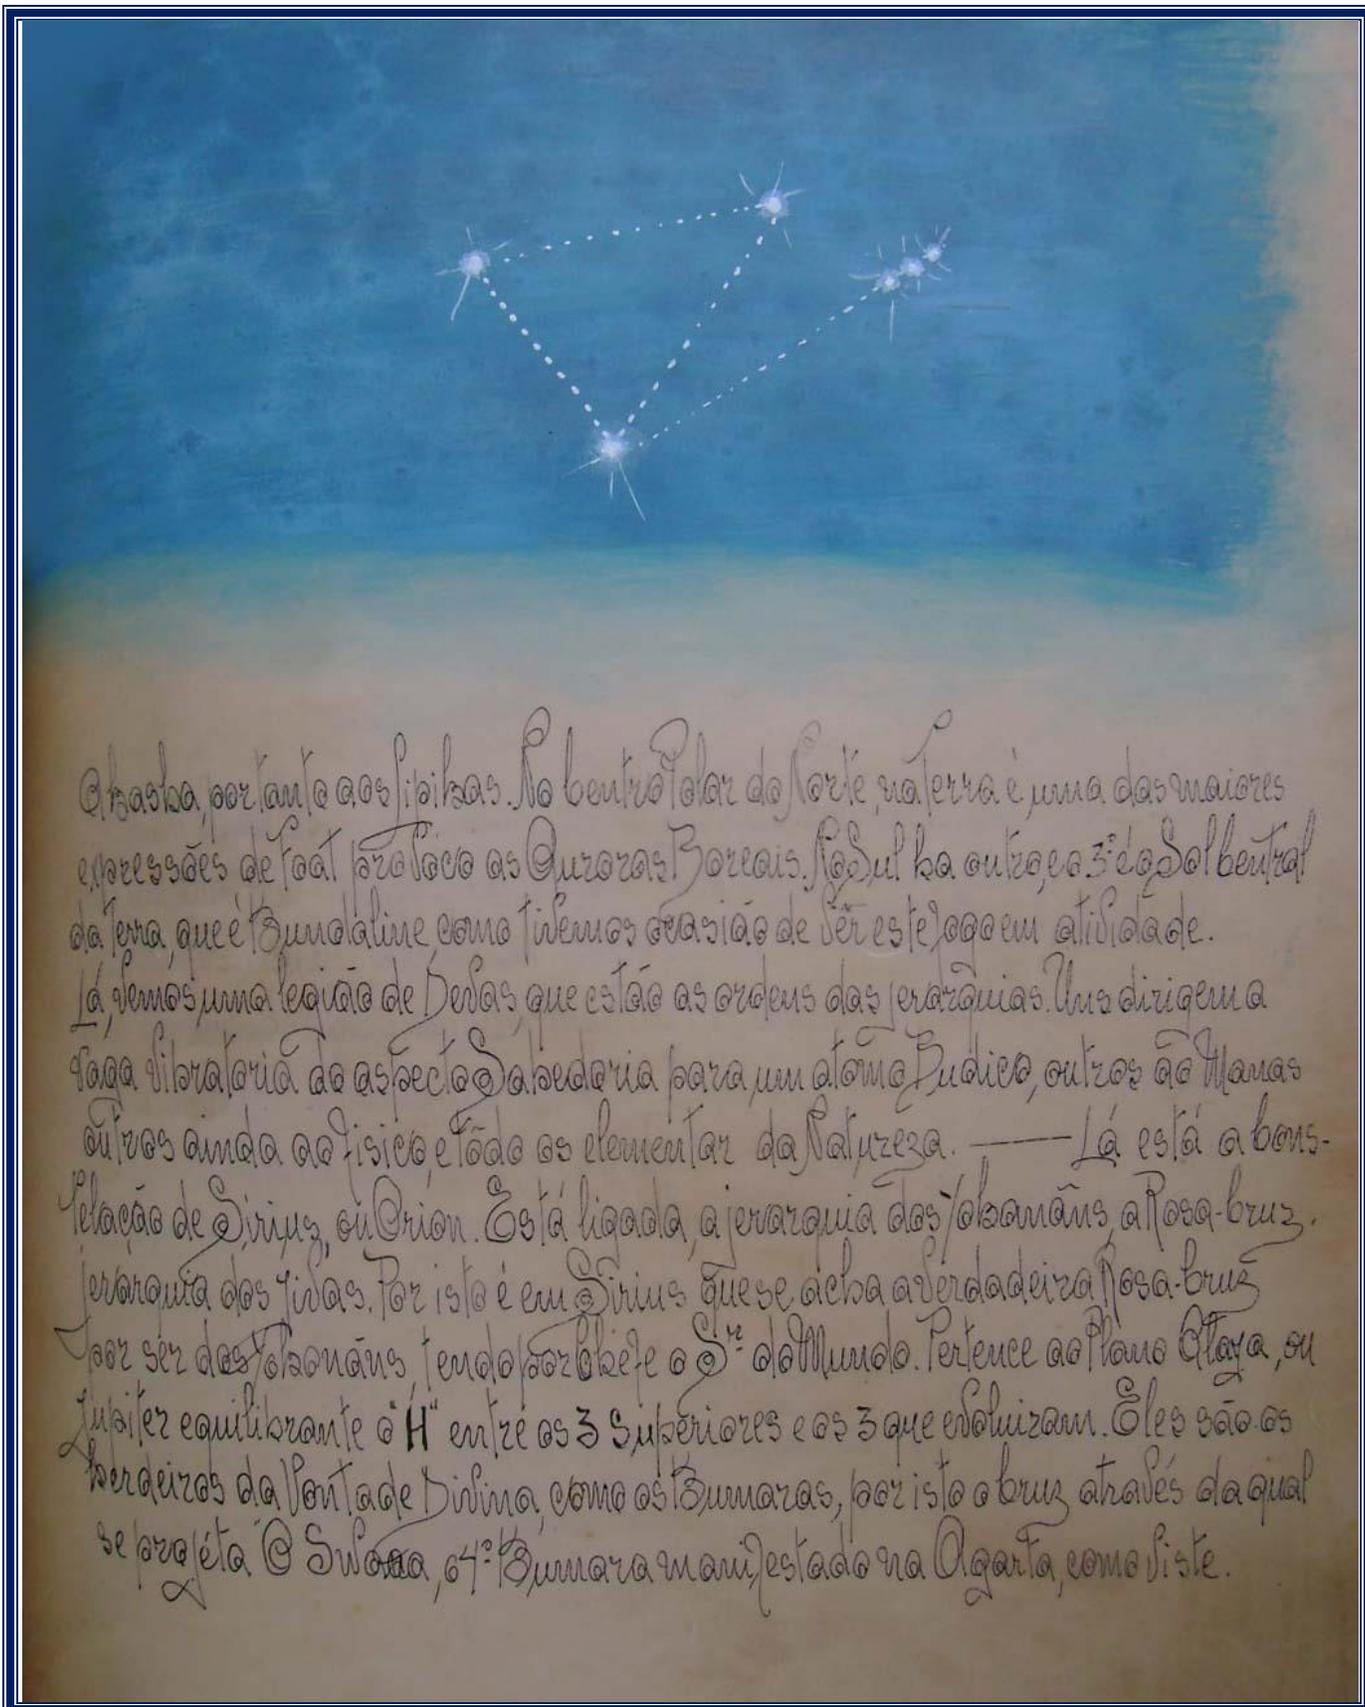 Akasha, portanto aos Lipikas. No Centro Polar do Norte, na Terra é uma das maiores
expressões de Foat provoca as Auroras Boreais. No Sul ha outro, e o 3º é o Sol Central
da Terra, que é Kundaline, como tivemos ocasião de vêr este fogo em atividade.
Lá, vemos uma legião de Devas, que estão as ordens das jerarquias. Uns dirigem a
vaga vibratoria do aspecto Sabedoria para um atomo Budico, outros ao Manas
outros ainda ao fisico, e todo os elementar da Natureza. — Lá está a Cons-
telação de Sirius, ou Orion. Está ligada, a jerarquia dos Yokanãns, a Rosa-Cruz.
jerarquia dos Jivas. Por isto é em Sirius que se acha a verdadeira Rosa-Cruz
por ser dos Yokanãns, tendo por Chefe o Sr. do Mundo. Pertence ao Plano
Jupiter equilibrante o "H" entre os 3 Superiores e os 3 que evoluiram. Eles são os
herdeiros da Vontade Divina, como os Kumaras, por isto a Cruz através da qual
se projéta o 4º Kumara manifestado na Agarta, como viste.